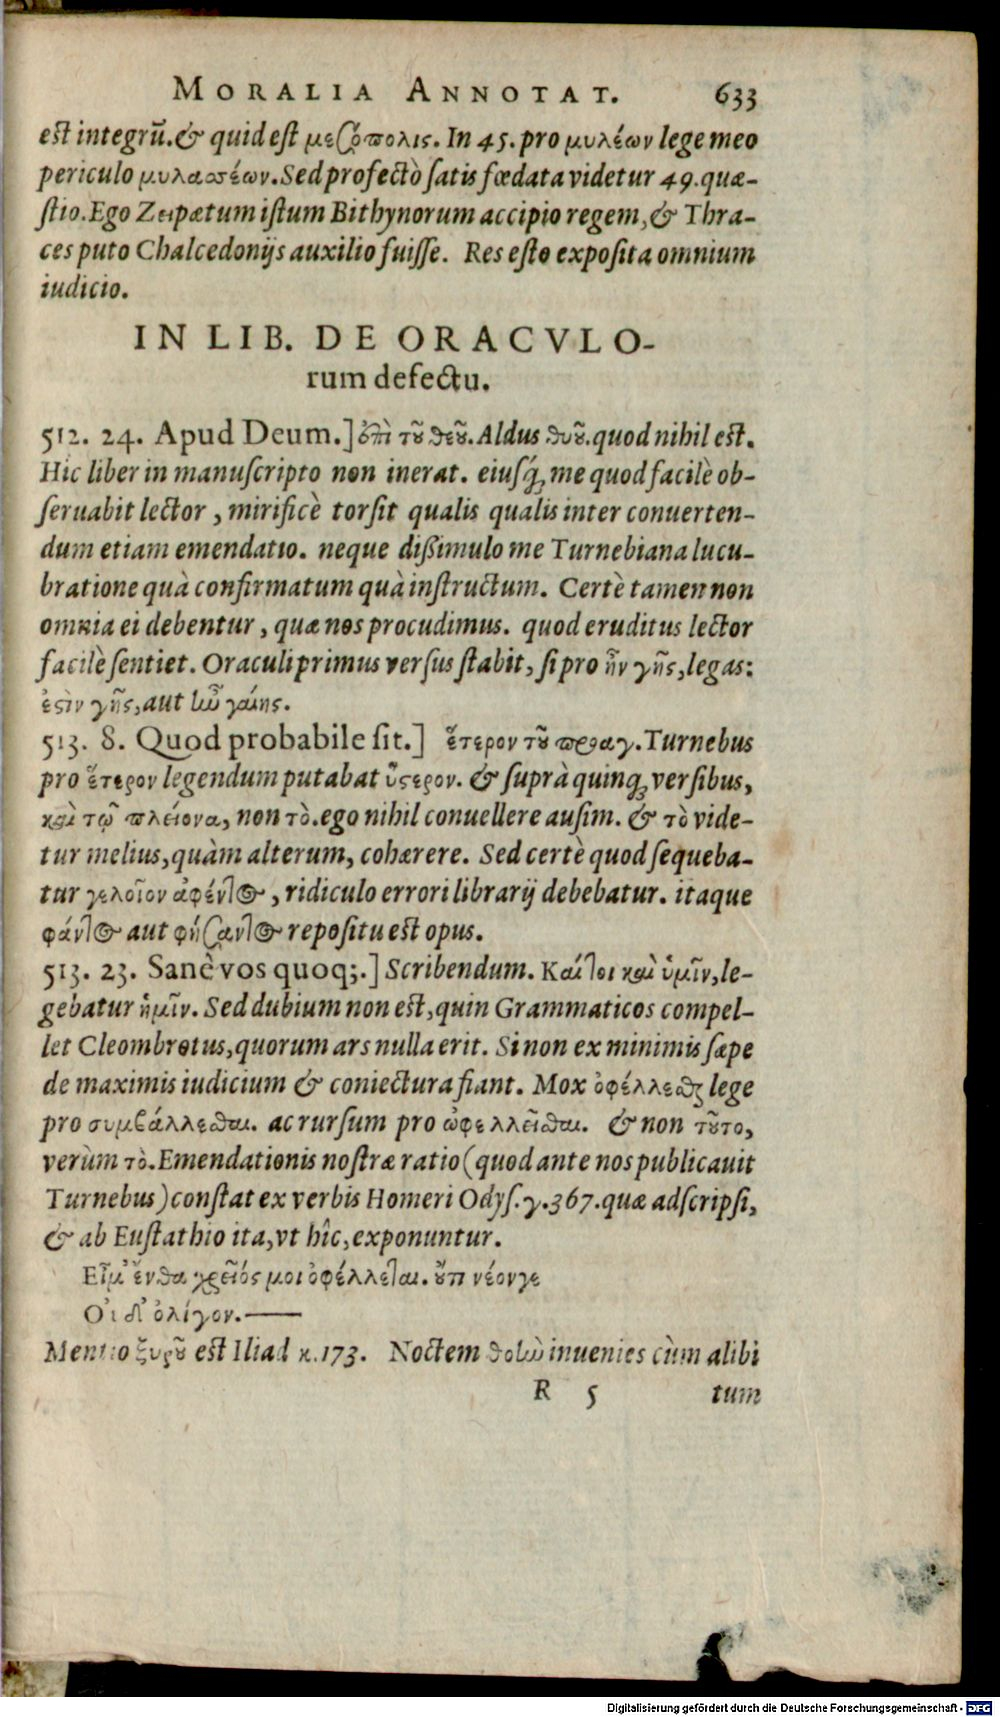 MORALIA ANNOTAT. 633
est integrũ. & quid est μεσόπολις. In 45. pro μυλέων lege meo
periculo μυλασέων. Sed profectò satis fœdata videtur 49. quæ-
stio. Ego Zειpætum istum Bithynorum accipio regem, & Thra-
ces puto Chalcedonijs auxilio fuisse. Res esto exposita omnium
iudicio.
IN LIB. DE ORACVLO-
rum defectu.
512. 24. Apud Deum.] ἐπὶ τοῦ θεοῦ. Aldus θυοῦ. quod nihil est.
Hic liber in manuscripto non inerat. eiusq́; me quod facilè ob-
seruabit lector, mirificè torsit qualis qualis inter conuerten-
dum etiam emendatio. neque dißimulo me Turnebiana lucu-
bratione quà confirmatum quà instructum. Certè tamen non
omnia ei debentur, quæ nos procudimus. quod eruditus lector
facilè sentiet. Oraculi primus versus stabit, si pro ἦν γῆς, legas:
ἐστὶν γῆς, aut ἦν γαίης.
513. 8. Quod probabile sit.] ἕτερον τοῦ πραγ. Turnebus
pro ἕτερον legendum putabat ὕστερον. & suprà quinq; versibus,
καὶ τῷ πλείονα, non τὸ. ego nihil conuellere ausim. & τὸ vide-
tur melius, quàm alterum, cohærere. Sed certè quod sequeba-
tur γελοῖον ἀφέντος, ridiculo errori librarij debebatur. itaque
φάντος aut φήσαντος repositu est opus.
513. 23. Sanè vos quoq;.] Scribendum. Καίτοι καὶ ὑμῖν, le-
gebatur ἡμῖν. Sed dubium non est, quin Grammaticos compel-
let Cleombrotus, quorum ars nulla erit. Si non ex minimis sæpe
de maximis iudicium & coniectura fiant. Mox ὀφέλλεσθαι lege
pro συμβάλλεσθαι. ac rursum pro ὠφελλεῖσθαι. & non τοῦτο,
verùm τὸ. Emendationis nostræ ratio (quod ante nos publicauit
Turnebus) constat ex verbis Homeri Odys. γ. 367. quæ adscripsi,
& ab Eustathio ita, vt hîc, exponuntur.
Εἶμ' ἔνθα χρεῖός μοι ὀφέλλεται. οὔτι νέον γε
Οὐδ' ὀλίγον.——
Mentio ξυροῦ est Iliad κ. 173. Noctem θοὴν inuenies cùm alibi
R 5 tum
Digitalisierung gefördert durch die Deutsche Forschungsgemeinschaft · DFG